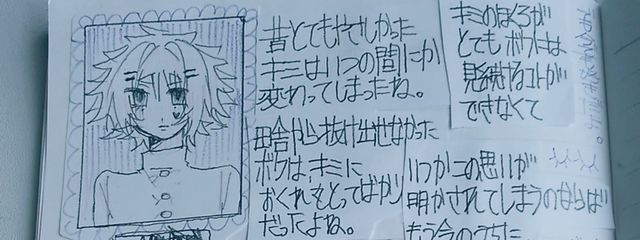 昔とてもやさしかった
キミはいつの間にか
変わってしまったね。
田舎から抜け出せなかった
ボクは、キミに
おくれをとってばかり
だったよね。
キミのほくろが
とても ボクには
見続けるコトが
できなくて
いつかこの思いが
明かされてしまうのならば
もう今のうちに